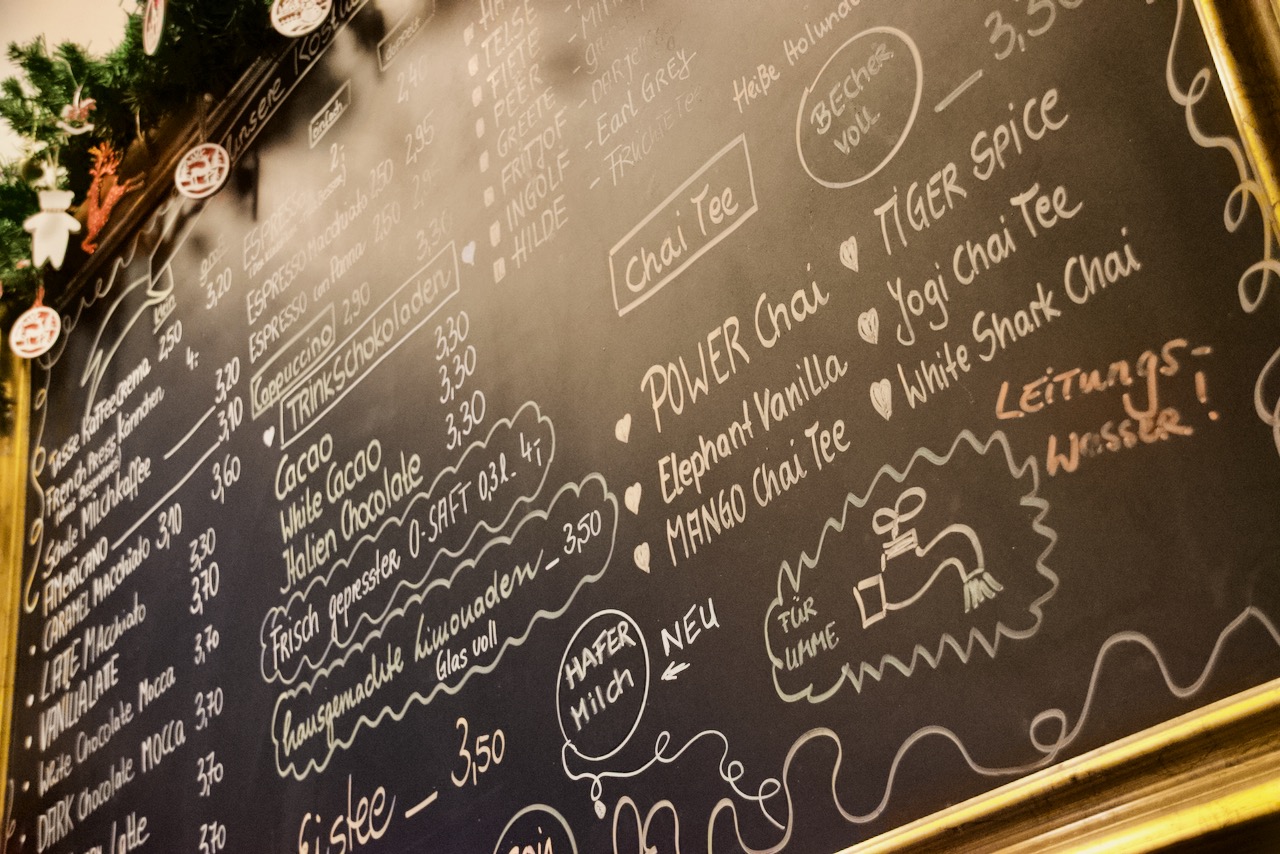 unsere
klein
Tasse Kaffee Crema 2,50
3,20
French Press Kännchen 4,-
Schale Milchkaffee 3,20
AMERICANO 3,10
CARAMEL Macchiato 3,10
3,60
LATTE Macchiato 3,30
VANILLALATTE 3,70
Weite Chocolate Mocca 3,70
DARK Chocolate MOCCA 3,70
Latte 3,70
3,70
einfach
doppelt
ESPRESSO 2,-
2,40
ESPRESSO Macchiato 2,50 2,95
ESPRESSO con Panna 2,60
Cappuccino 2,90 3,30
TRINKSchokoladen
Cacao 3,30
White Cacao 3,30
Italien Chocolate 3,30
Frisch gepresster O-SAFT 0,3l. 4,-
hausgemachte Limonaden - 3,50
Glas voll
Eistee - 3,50
TELSE
FIETE
PEER
GREETE
FRITJOF
INGOLF
HILDE
- Earl GREY
- FRÜCHTETEE
Heiße
BECHER
VOLL
- 3,50
Chai Tee
POWER Chai
Elephant Vanilla
MANGO Chai TEE
TIGER SPICE
Yogi Chai Tee
White Shark Chai
LEITUNGS-
Wasser!
FÜR
UMME
HAFER
Milch
NEU